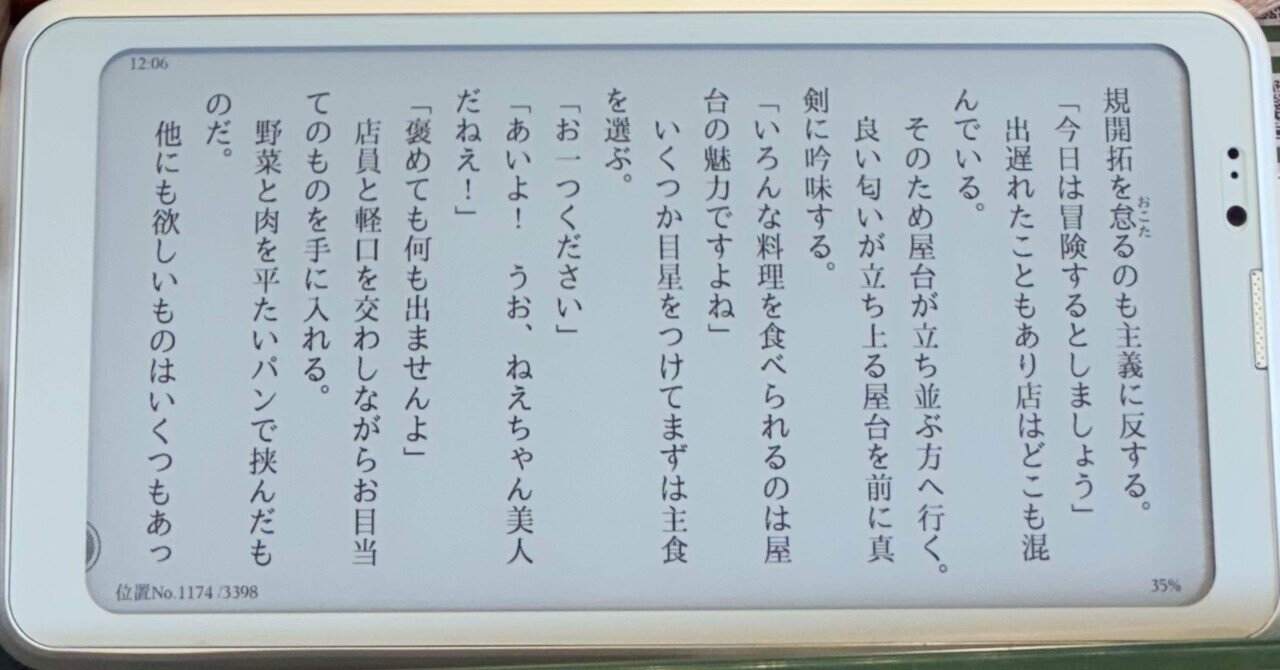 12:06
規開拓を怠るのも主義に反する。
おこた
「今日は冒険するとしましょう」
出遅れたこともあり店はどこも混
んでいる。
そのため屋台が立ち並ぶ方へ行く。
良い匂いが立ち上る屋台を前に真
剣に吟味する。
「いろんな料理を食べられるのは屋
台の魅力ですよね」
いくつか目星をつけてまずは主食
を選ぶ。
「お一つください」
「あいよ！　うお、ねえちゃん美人
だねえ！」
「褒めても何も出ませんよ」
店員と軽口を交わしながらお目当
てのものを手に入れる。
野菜と肉を平たいパンで挟んだも
のだ。
他にも欲しいものはいくつもあっ
位置No.1174 /3398
35%